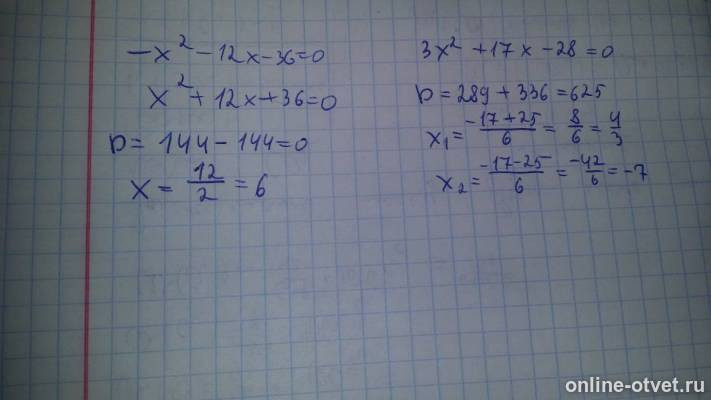 -x² - 12x - 36 = 0
x² + 12x + 36 = 0
D = 144 - 144 = 0
x = 12/2 = 6
3x² + 17x - 28 = 0
D = 289 + 336 = 625
x₁ = -17 + 25/6 = 8/6 = 4/3
x₂ = -17 - 25/6 = -42/6 = -7
online-otvet.ru